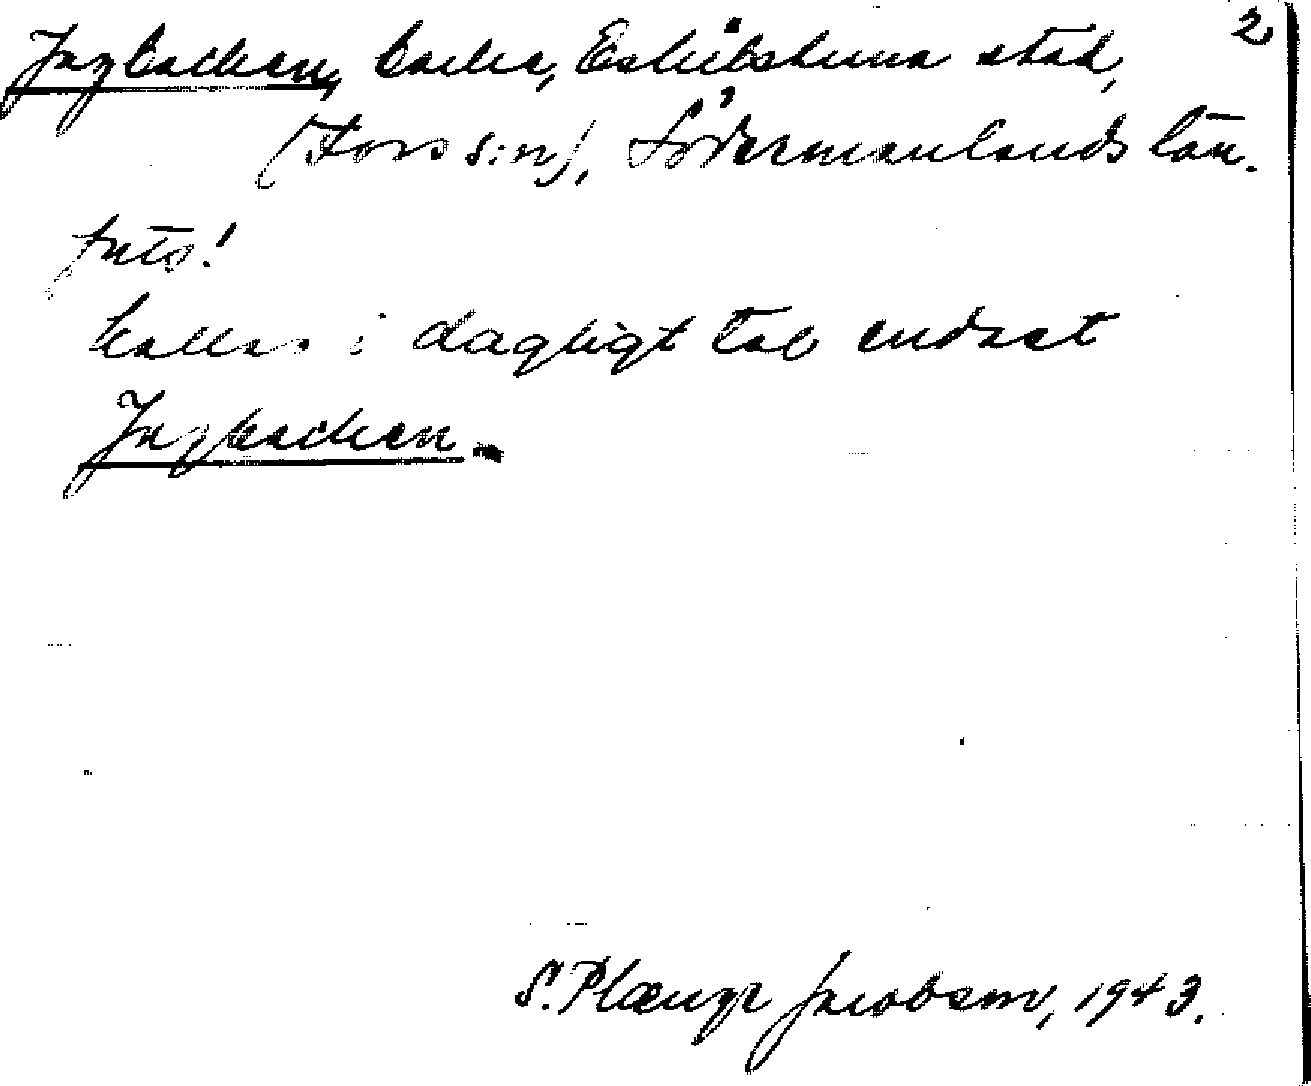 2
Jagbacken, backe, Eskilstuna stad,
(Fors s:n), Södermanlands län.
kallas i dagligt tal endast
Jagbacken.
S. Plænge Jacobson, 1943.